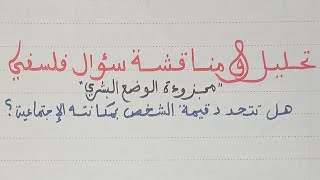 تحليل و مناقشة سؤال فلسفي
"مجزوءة الوضع البشري"
هل تتحدد قيمة الشخص بمكانته الإجتماعية؟